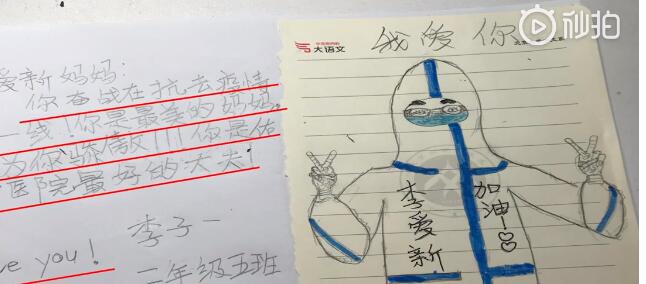 爱新妈妈：
你奋战在抗击疫情
一线！你是最美的妈妈。
为你骄傲！！！你是佑
医院最好的大夫！
李子一
ve you！
二年级五班
秒拍
大语文
我爱你
李爱新
加油！